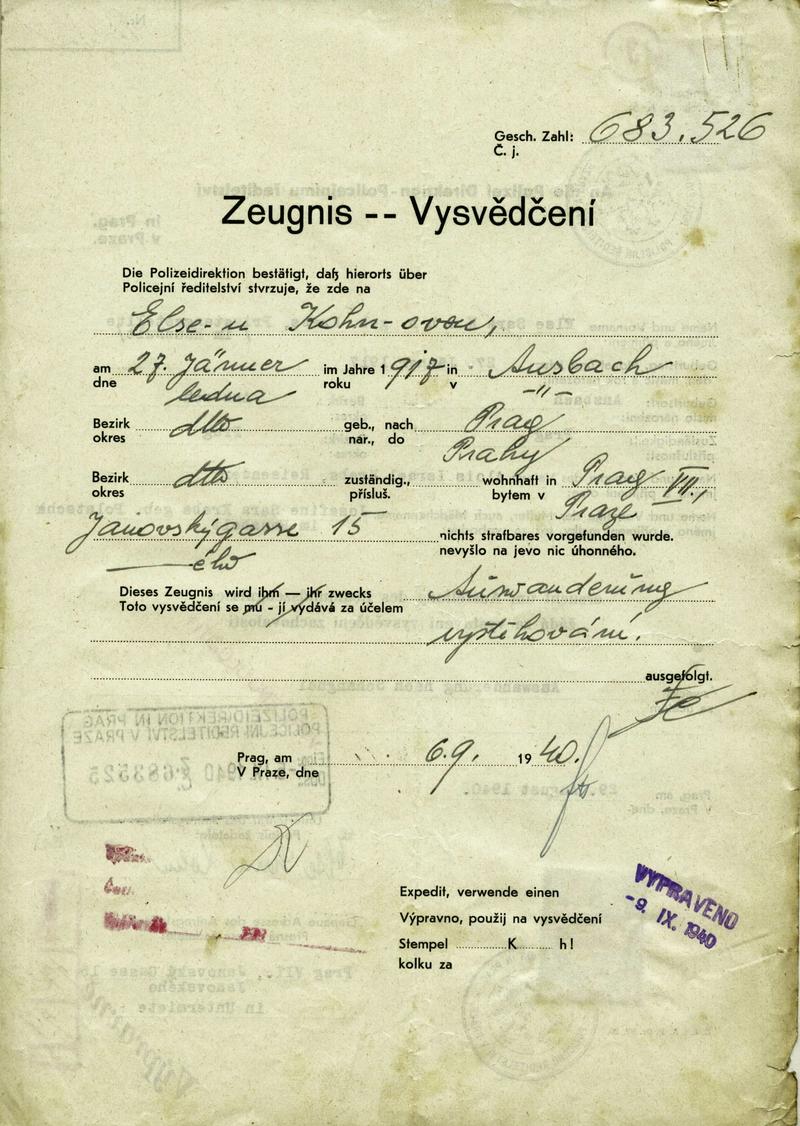 Gesch. Zahl: 683.526
Č. j.
Zeugnis -- Vysvědčení
Die Polizeidirektion bestätigt, daß hierorts über
Policejní ředitelství stvrzuje, že zde na
Else-u Kohn-ovou,
am 27. Jänner im Jahre 1917 in Ansbach
dne ledna roku v -"-
Bezirk dtto geb., nach Prag
okres nar., do Prahy
Bezirk dtto zuständig., wohnhaft in Prag VII.,
okres přísluš. bytem v Praze
Janovskýgasse 15 nichts strafbares vorgefunden wurde.
-ého nevyšlo na jevo nic úhonného.
Dieses Zeugnis wird ihm — ihr zwecks Auswanderung
Toto vysvědčení se mu - jí vydává za účelem
vystěhování.
ausgefolgt.
Prag, am 6.9. 1940.
V Praze, dne
Expedit, verwende einen
Výpravno, použij na vysvědčení
Stempel K h!
kolku za
VYPRAVENO
-9. IX. 1940
POLIZEIDIREKTION IN PRAG
POLICEJNÍ ŘEDITELSTVÍ V PRAZE